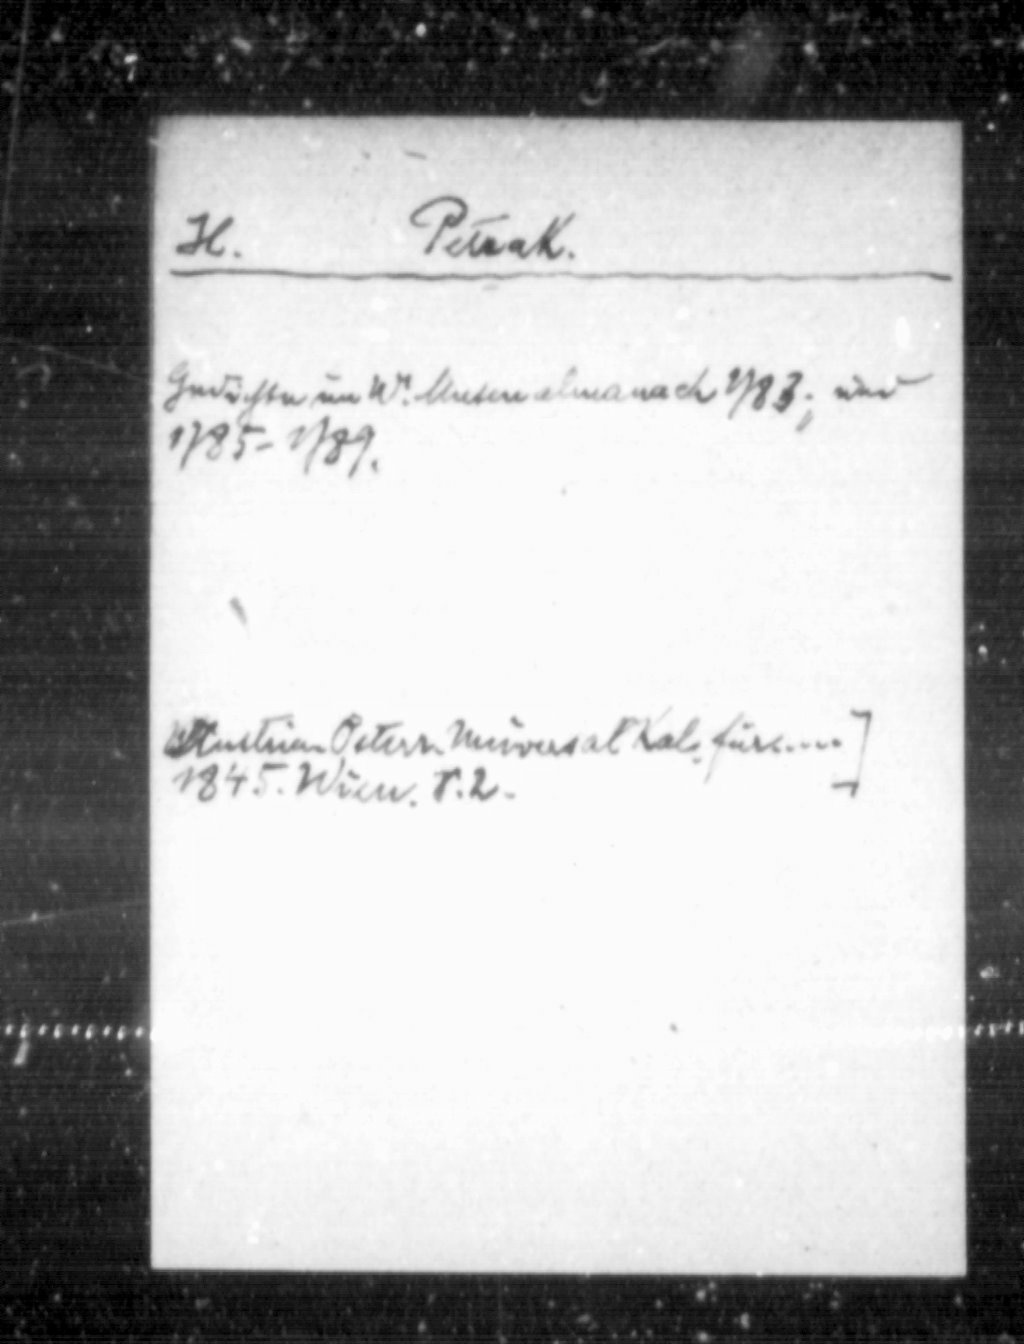 H. Petrak.
Gedichte im Wr. Musenalmanach 1783; und
1785-1789.
Austria. Österr. Universal Kal. für.....]
1845. Wien. S. 2.